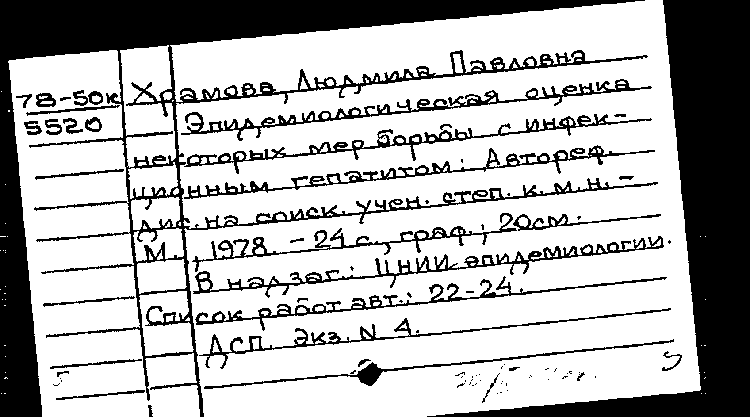 78-50к Храмова, Людмила Павловна
5520 Эпидемиологическая оценка
некоторых мер борьбы с инфек-
ционным гепатитом: Автореф.
дис. на соиск. учен. степ. к.м.н. -
М., 1978. - 24 с., граф.; 20см.
В надзаг.: ЦНИИ эпидемиологии.
Список работ авт.: 22-24.
ДСП. Экз. N 4.